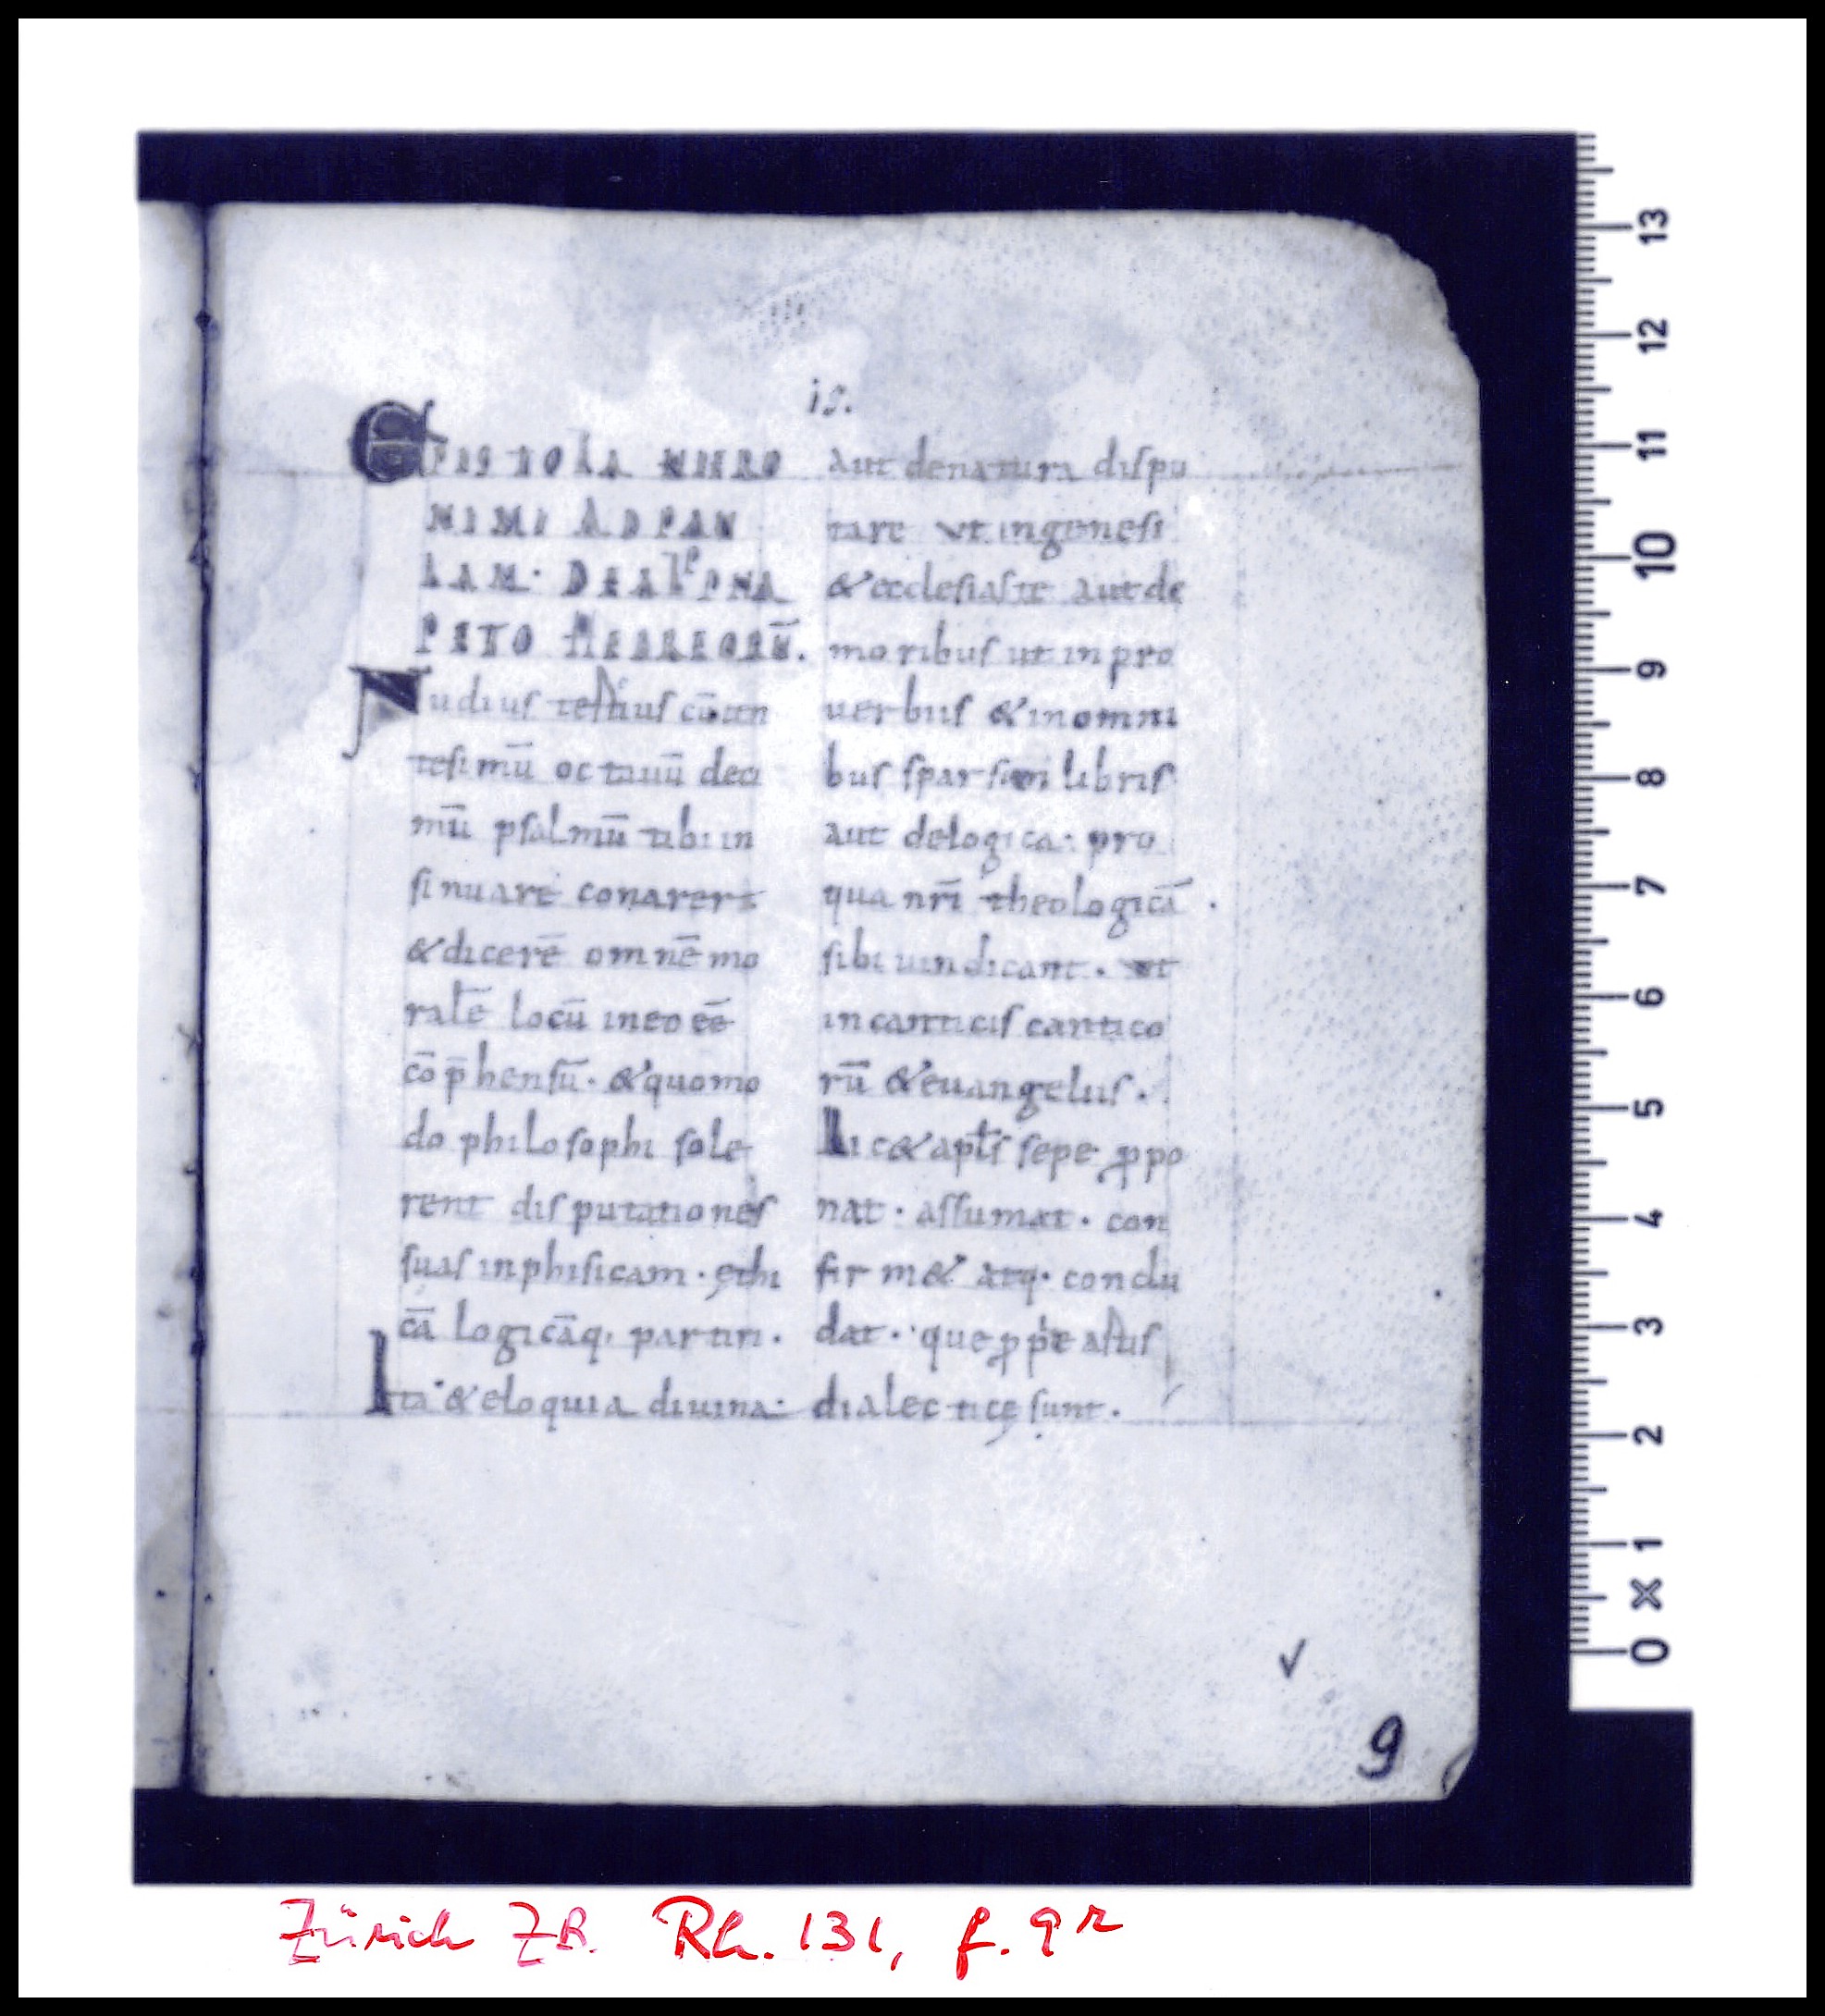 is.
EPISTOLA HIERO
NIMI AD PAU
LAM· DE ALPHA
BETO HEBREORŪ.
Nudius tertius cū cen
tesimū octauū deci
mū psalmū tibi in
sinuare conarer &
& dicerē omnē mo
ralē locū in eo eē
cōp̄hensū· & quomo
do philosophi sole
rent disputationes
suas in phisicam · ęthi
cā logicāq· partiri·
Ita & eloquia diuina·
aut de natura dispu
tare ut in genesi
& ecclesiaste aut de
moribus ut in pro
uerbiis & in omni
bus sparsim libris
aut de logica· pro
qua nr̄i theologicā·
sibi uindicant· ut
in canticis cantico
rū & euangeliis·
Licet & apl̄s sepe ꝓpo
nat· assumat· con
firm& atq· conclu
dat· que ꝓp̄e artis
dialecticę sunt·
9
13
12
11
10
9
8
7
6
5
4
3
2
1
X
0
Zürich ZB. Rh. 131, f. 9r